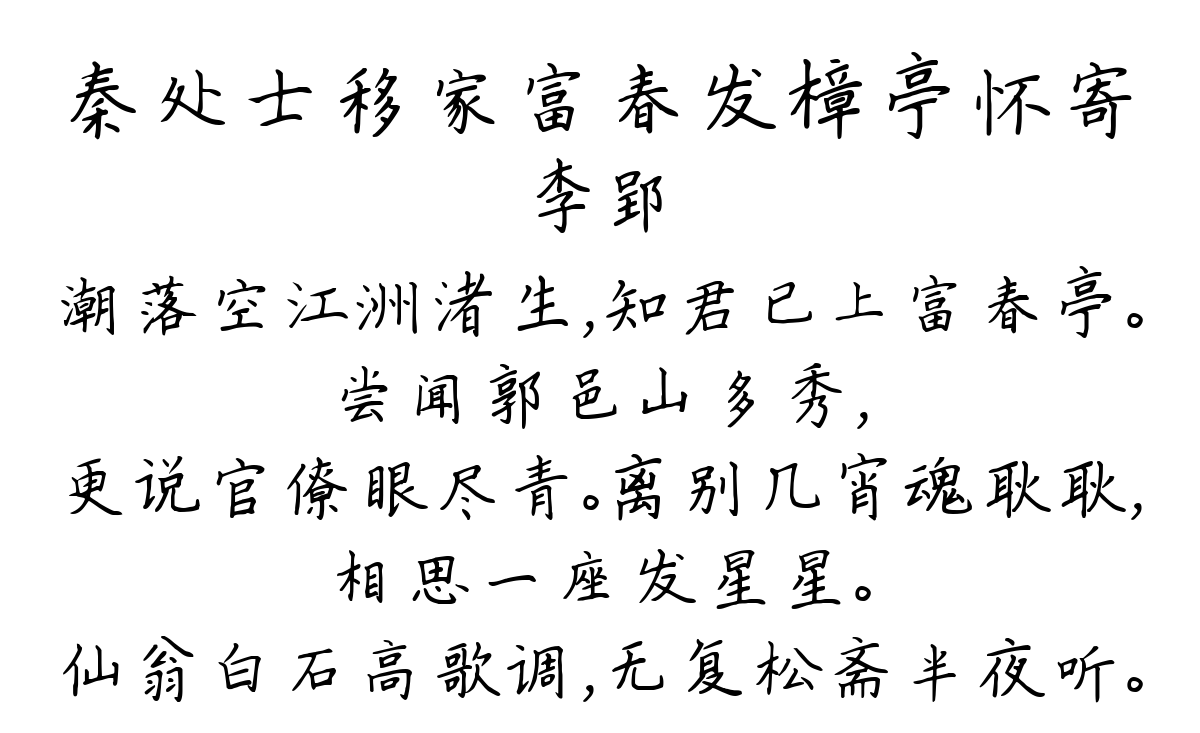 秦处士移家富春发樟亭怀寄
李郢
潮落空江洲渚生,知君已上富春亭。
尝闻郭邑山多秀,
更说官僚眼尽青。离别几宵魂耿耿,
相思一座发星星。
仙翁白石高歌调,无复松斋半夜听。